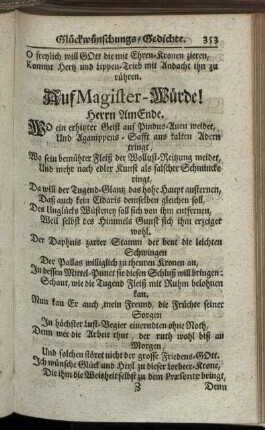 Glückwünschungs-Gedichte. 353
O freylich will GOtt die mit Ehren-Kronen zieren,
Kommt Hertz und Lippen-Trieb mit Andacht ihn zu
rühren.
Auf Magister-Würde!
Herrn AmEnde.
WO ein erhitzter Geist auf Pindus-Auen weidet,
Und Aganippens-Safft aus kalten Adern
tringt,
Wo sein bemühter Fleiß der Wollust-Reitzung meidet,
Und mehr nach edler Kunst als falscher Schmincke
ringt,
Da will der Tugend-Glantz das hohe Haupt ausfernen,
Daß auch kein Cidaris demselben gleichen soll,
Des Unglücks Wüsteney soll sich von ihm entfernen,
Weil selbst des Himmels Gunst sich ihm erzeiget
wohl.
Der Daphnis zarter Stamm der beut die leichten
Schwingen
Der Pallas williglich zu theuren Kronen an,
In dessen Mittel-Punct sie diesen Schluß will bringen:
Schaut, wie die Tugend Fleiß mit Ruhm belohnen
kan.
Nun kan Er auch, mein Freund, die Früchte seiner
Sorgen
In höchster Lust-Begier einerndten ohne Noth,
Denn wer die Arbeit thut, der ruth wohl biß an
Morgen,
Und solchen störet nicht der grosse Friedens-GOtt.
Ich wünsche Glück und Heyl zu dieser Lorbeer-Krone,
Die ihm die Weisheit selbst zu dem Præsente bringt,
Z Denn